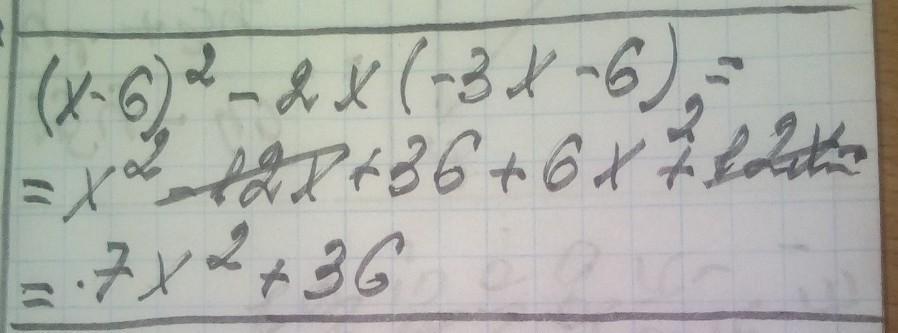 (x-6)² - 2x(-3x-6) =
= x² - 12x + 36 + 6x² + 12x =
= 7x² + 36